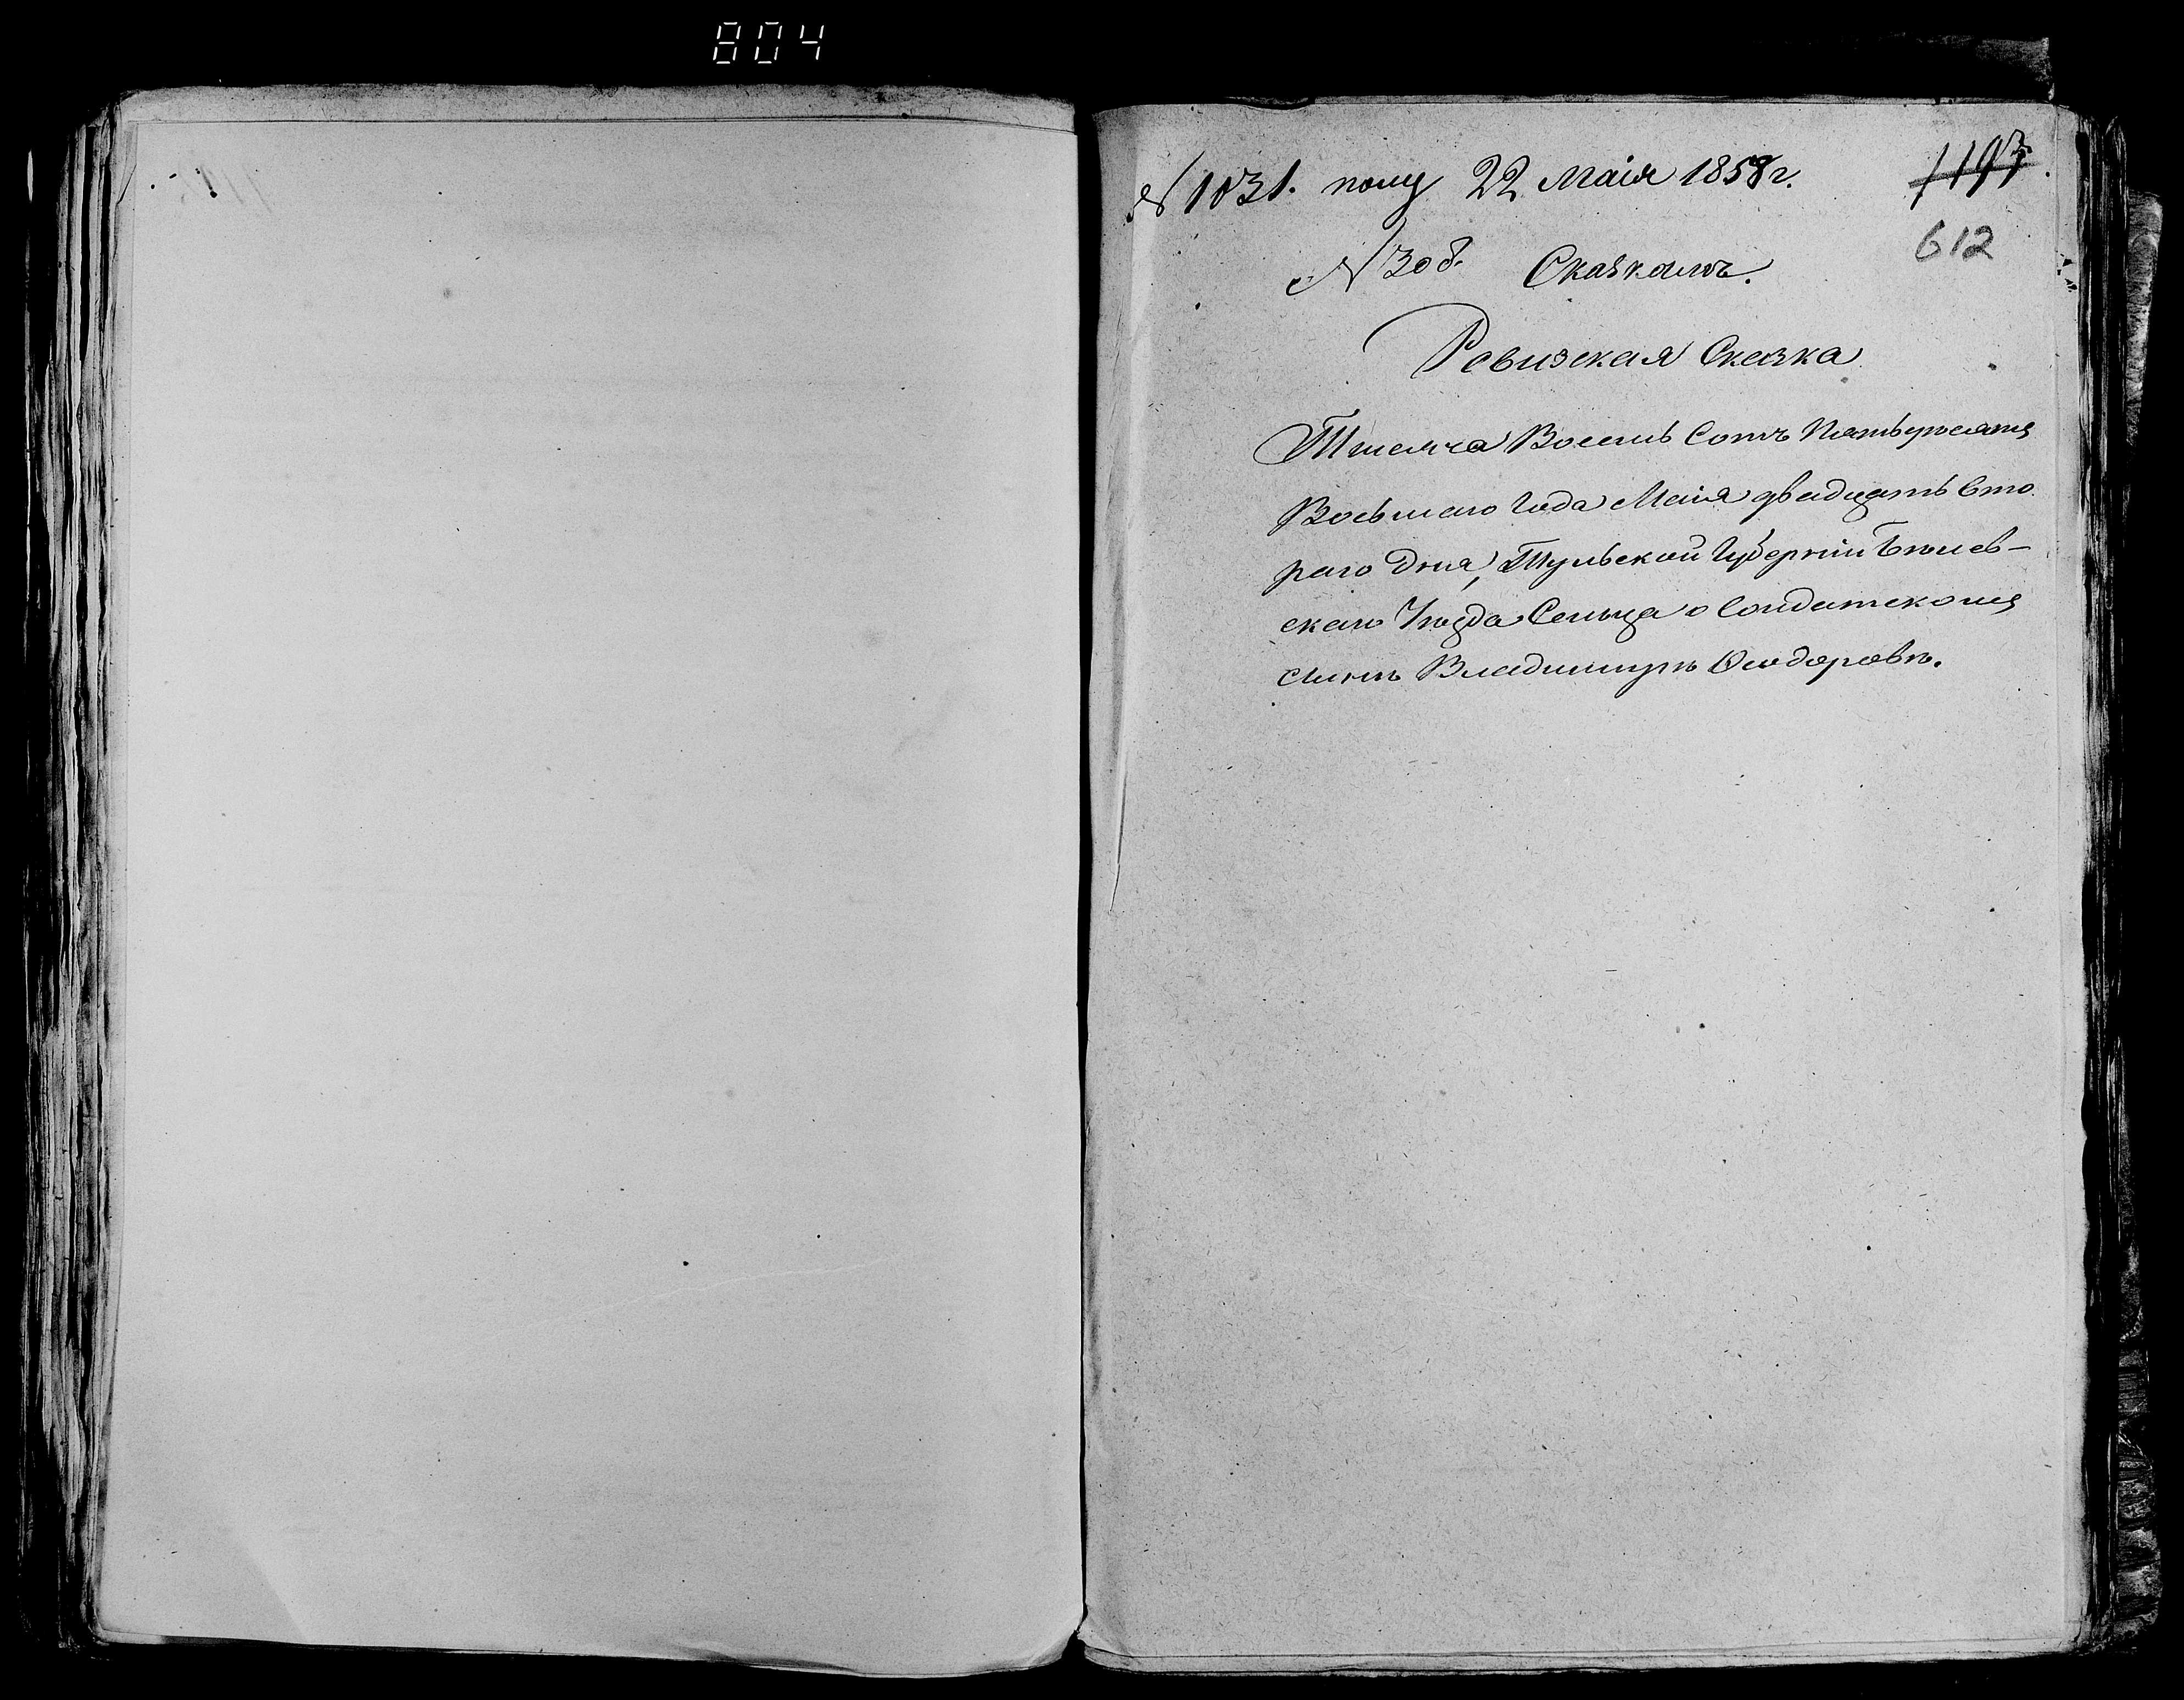 804
№ 1031. полу 22 Маія 1858 г.
1193
612
№ 308. Сказкамъ.
Ревизская Сказка
Тысяча Восемь Сотъ Пятьдесятъ
Восьмаго Года Маія двадцать вто
раго Дня, Тульской Губерніи Бѣлев-
скаго Уѣзда Сельца о
Владимирѣ Ѳеодоровѣ.